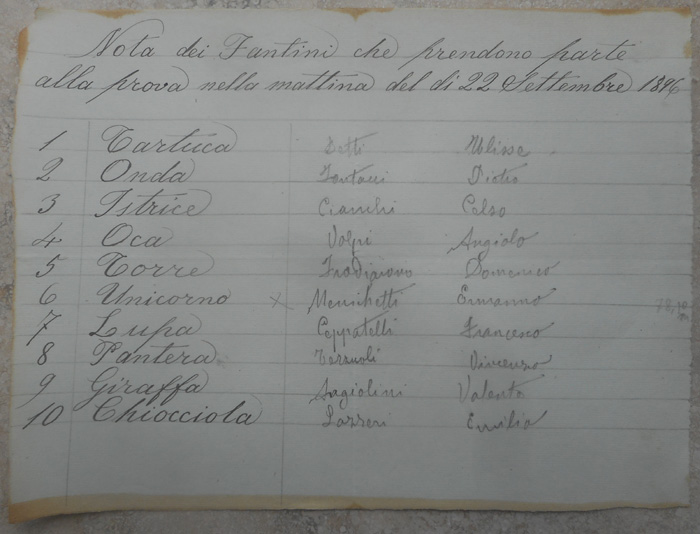 Nota dei Fantini che prendono parte
alla prova nella mattina del dì 22 Settembre 1896
1 Tartuca Zetti Ulisse
2 Onda Fontani
3 Istrice Cianchi Celso
4 Oca Volpi Angiolo
5 Torre Domenico
6 Unicorno x Menichetti Ermanno
7 Lupa Ceppatelli Francesco
8 Pantera Terzuoli Vincenzo
9 Giraffa Angiolini Valento
10 Chiocciola Lazzeri Emilio